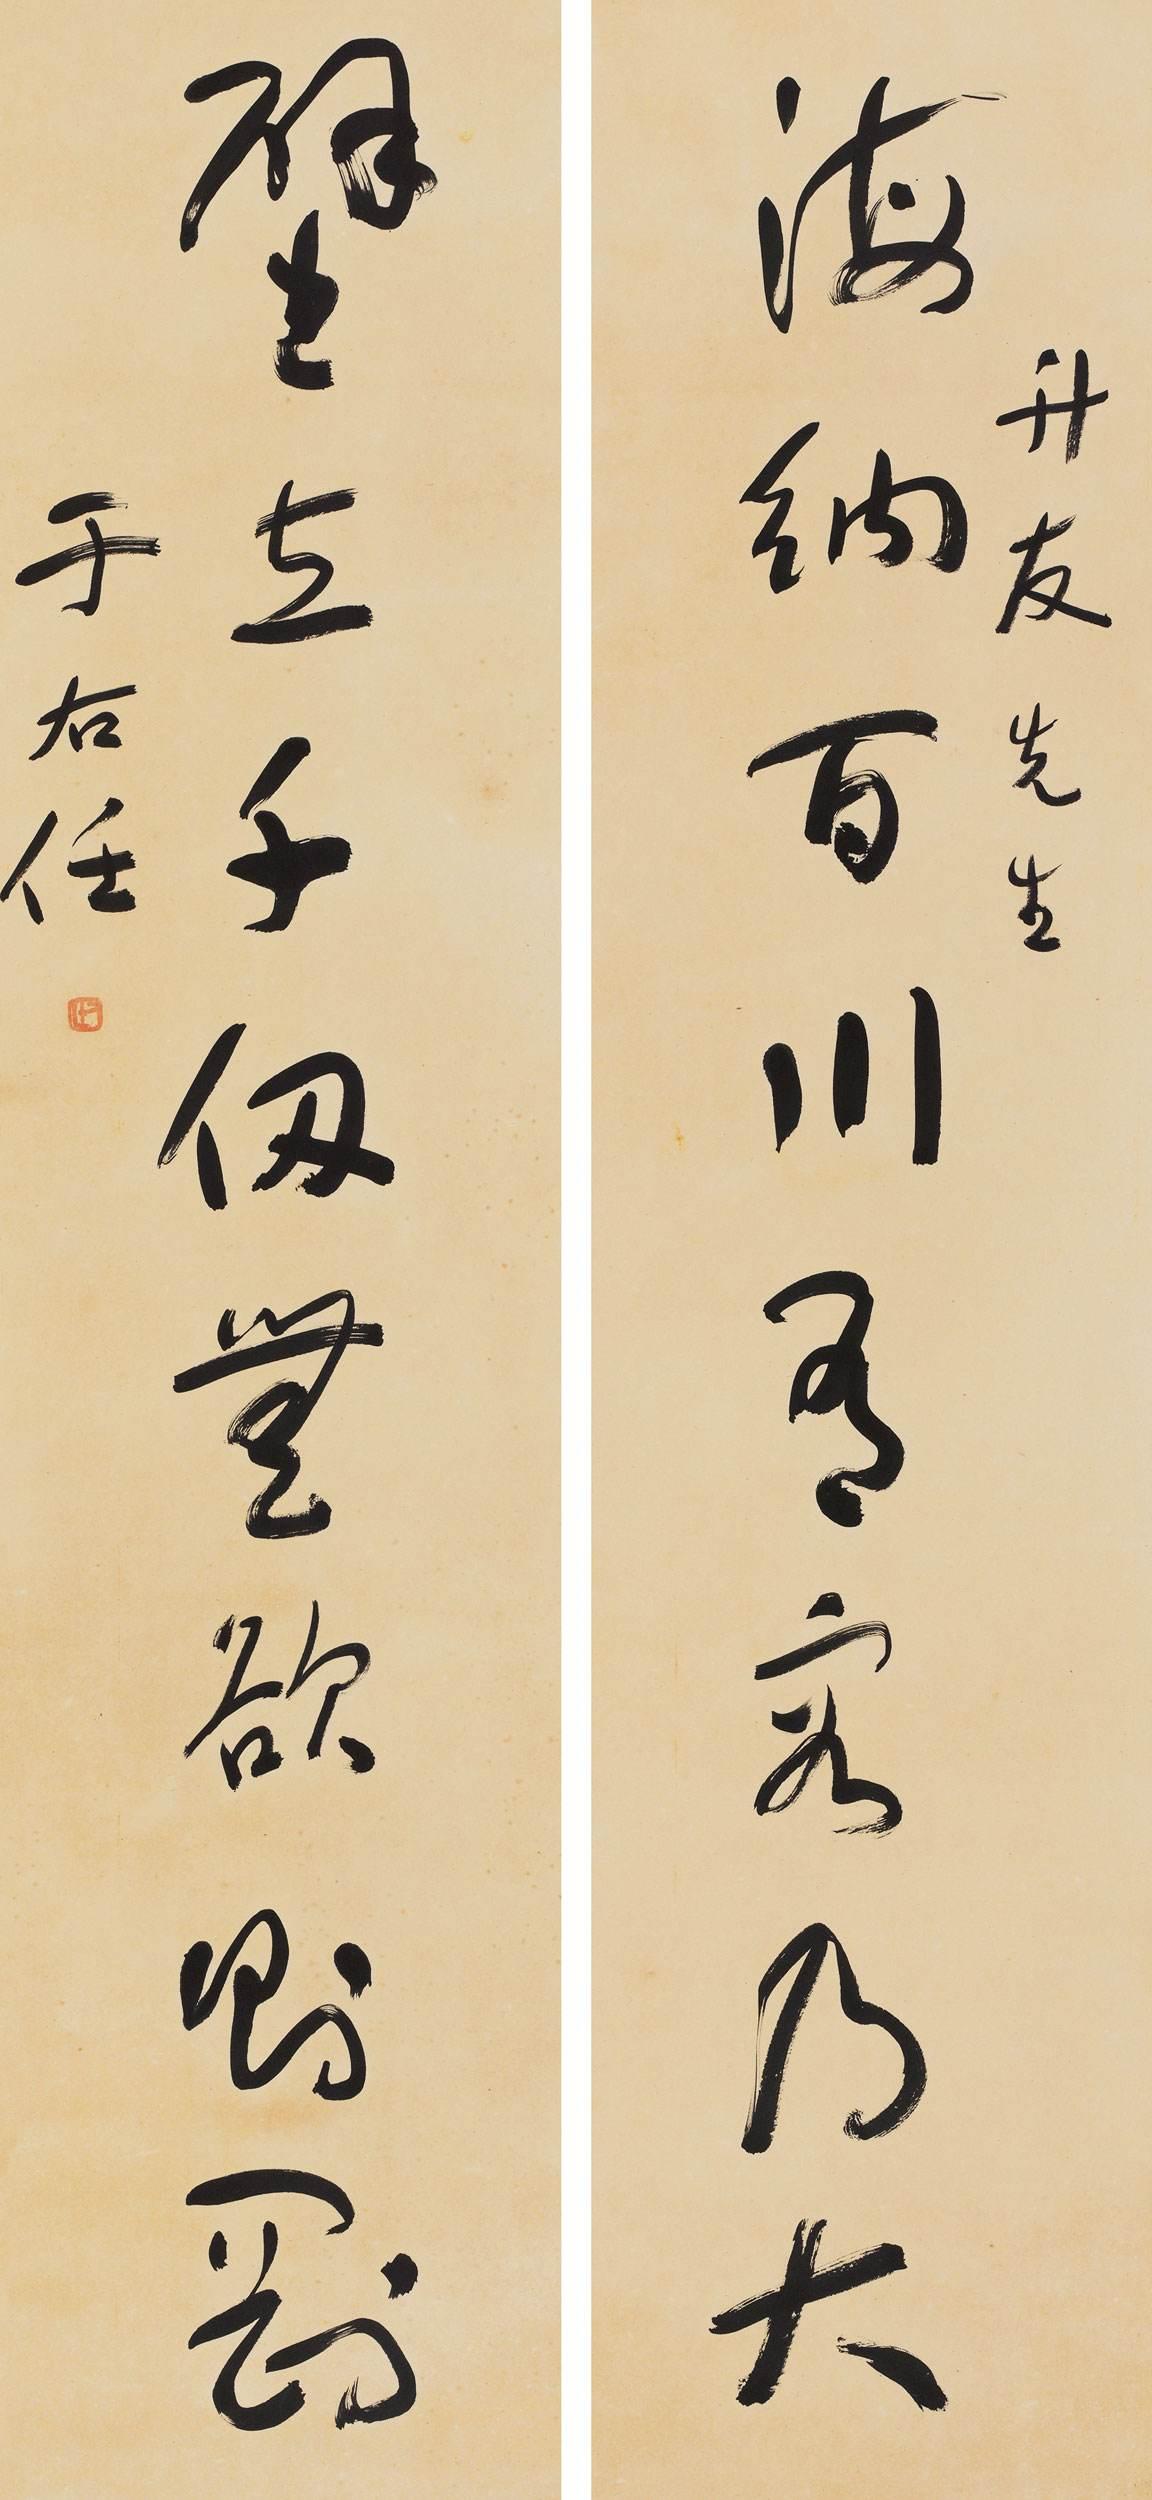 海納百川有容乃大
升友先生
壁立千仞無欲則剛
于右任